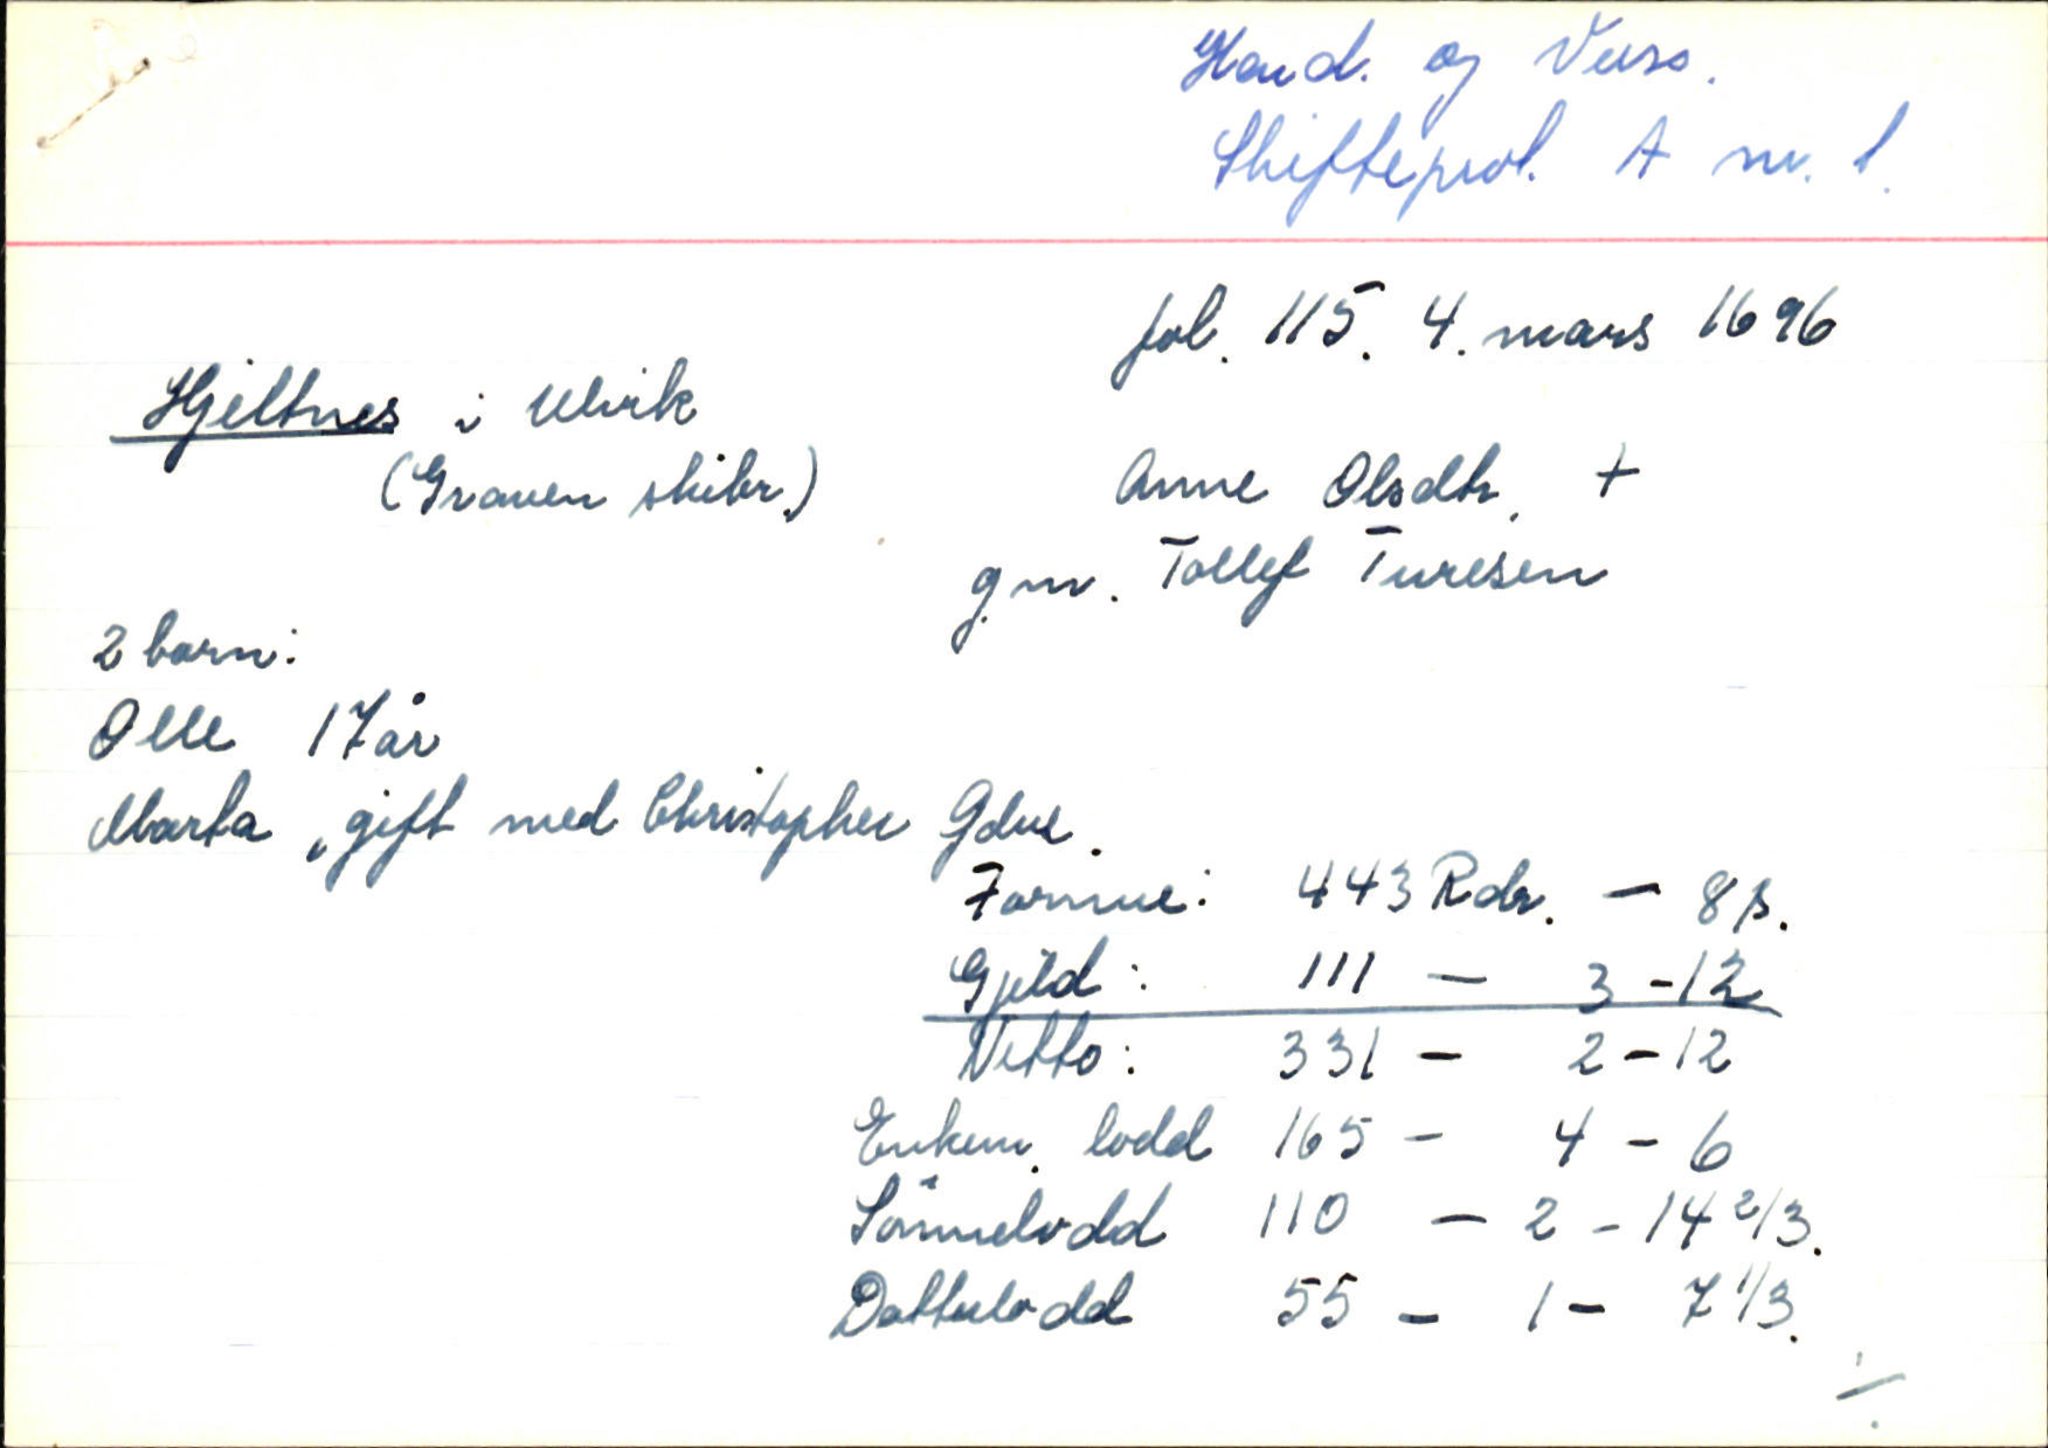 Hard. og Voss.
Skifteprot. A nr. 1.
fol. 115. 4. mars 1696
Hjeltnes i Ulvik
(Graven skibr.)
Anne Olsdtr. +
g.m. Tollef Turesen
2 barn:
Olle 17 år
Marta, gift med Christopher Gdue.
Formue: 443 Rdr. - 8 s.
Gjeld: 111 - 3 - 12
Netto: 331 - 2 - 12
Enkem. lodd 165 - 4 - 6
Sönnelodd 110 - 2 - 14 2/3.
Dotterlodd 55 - 1 - 7 1/3.